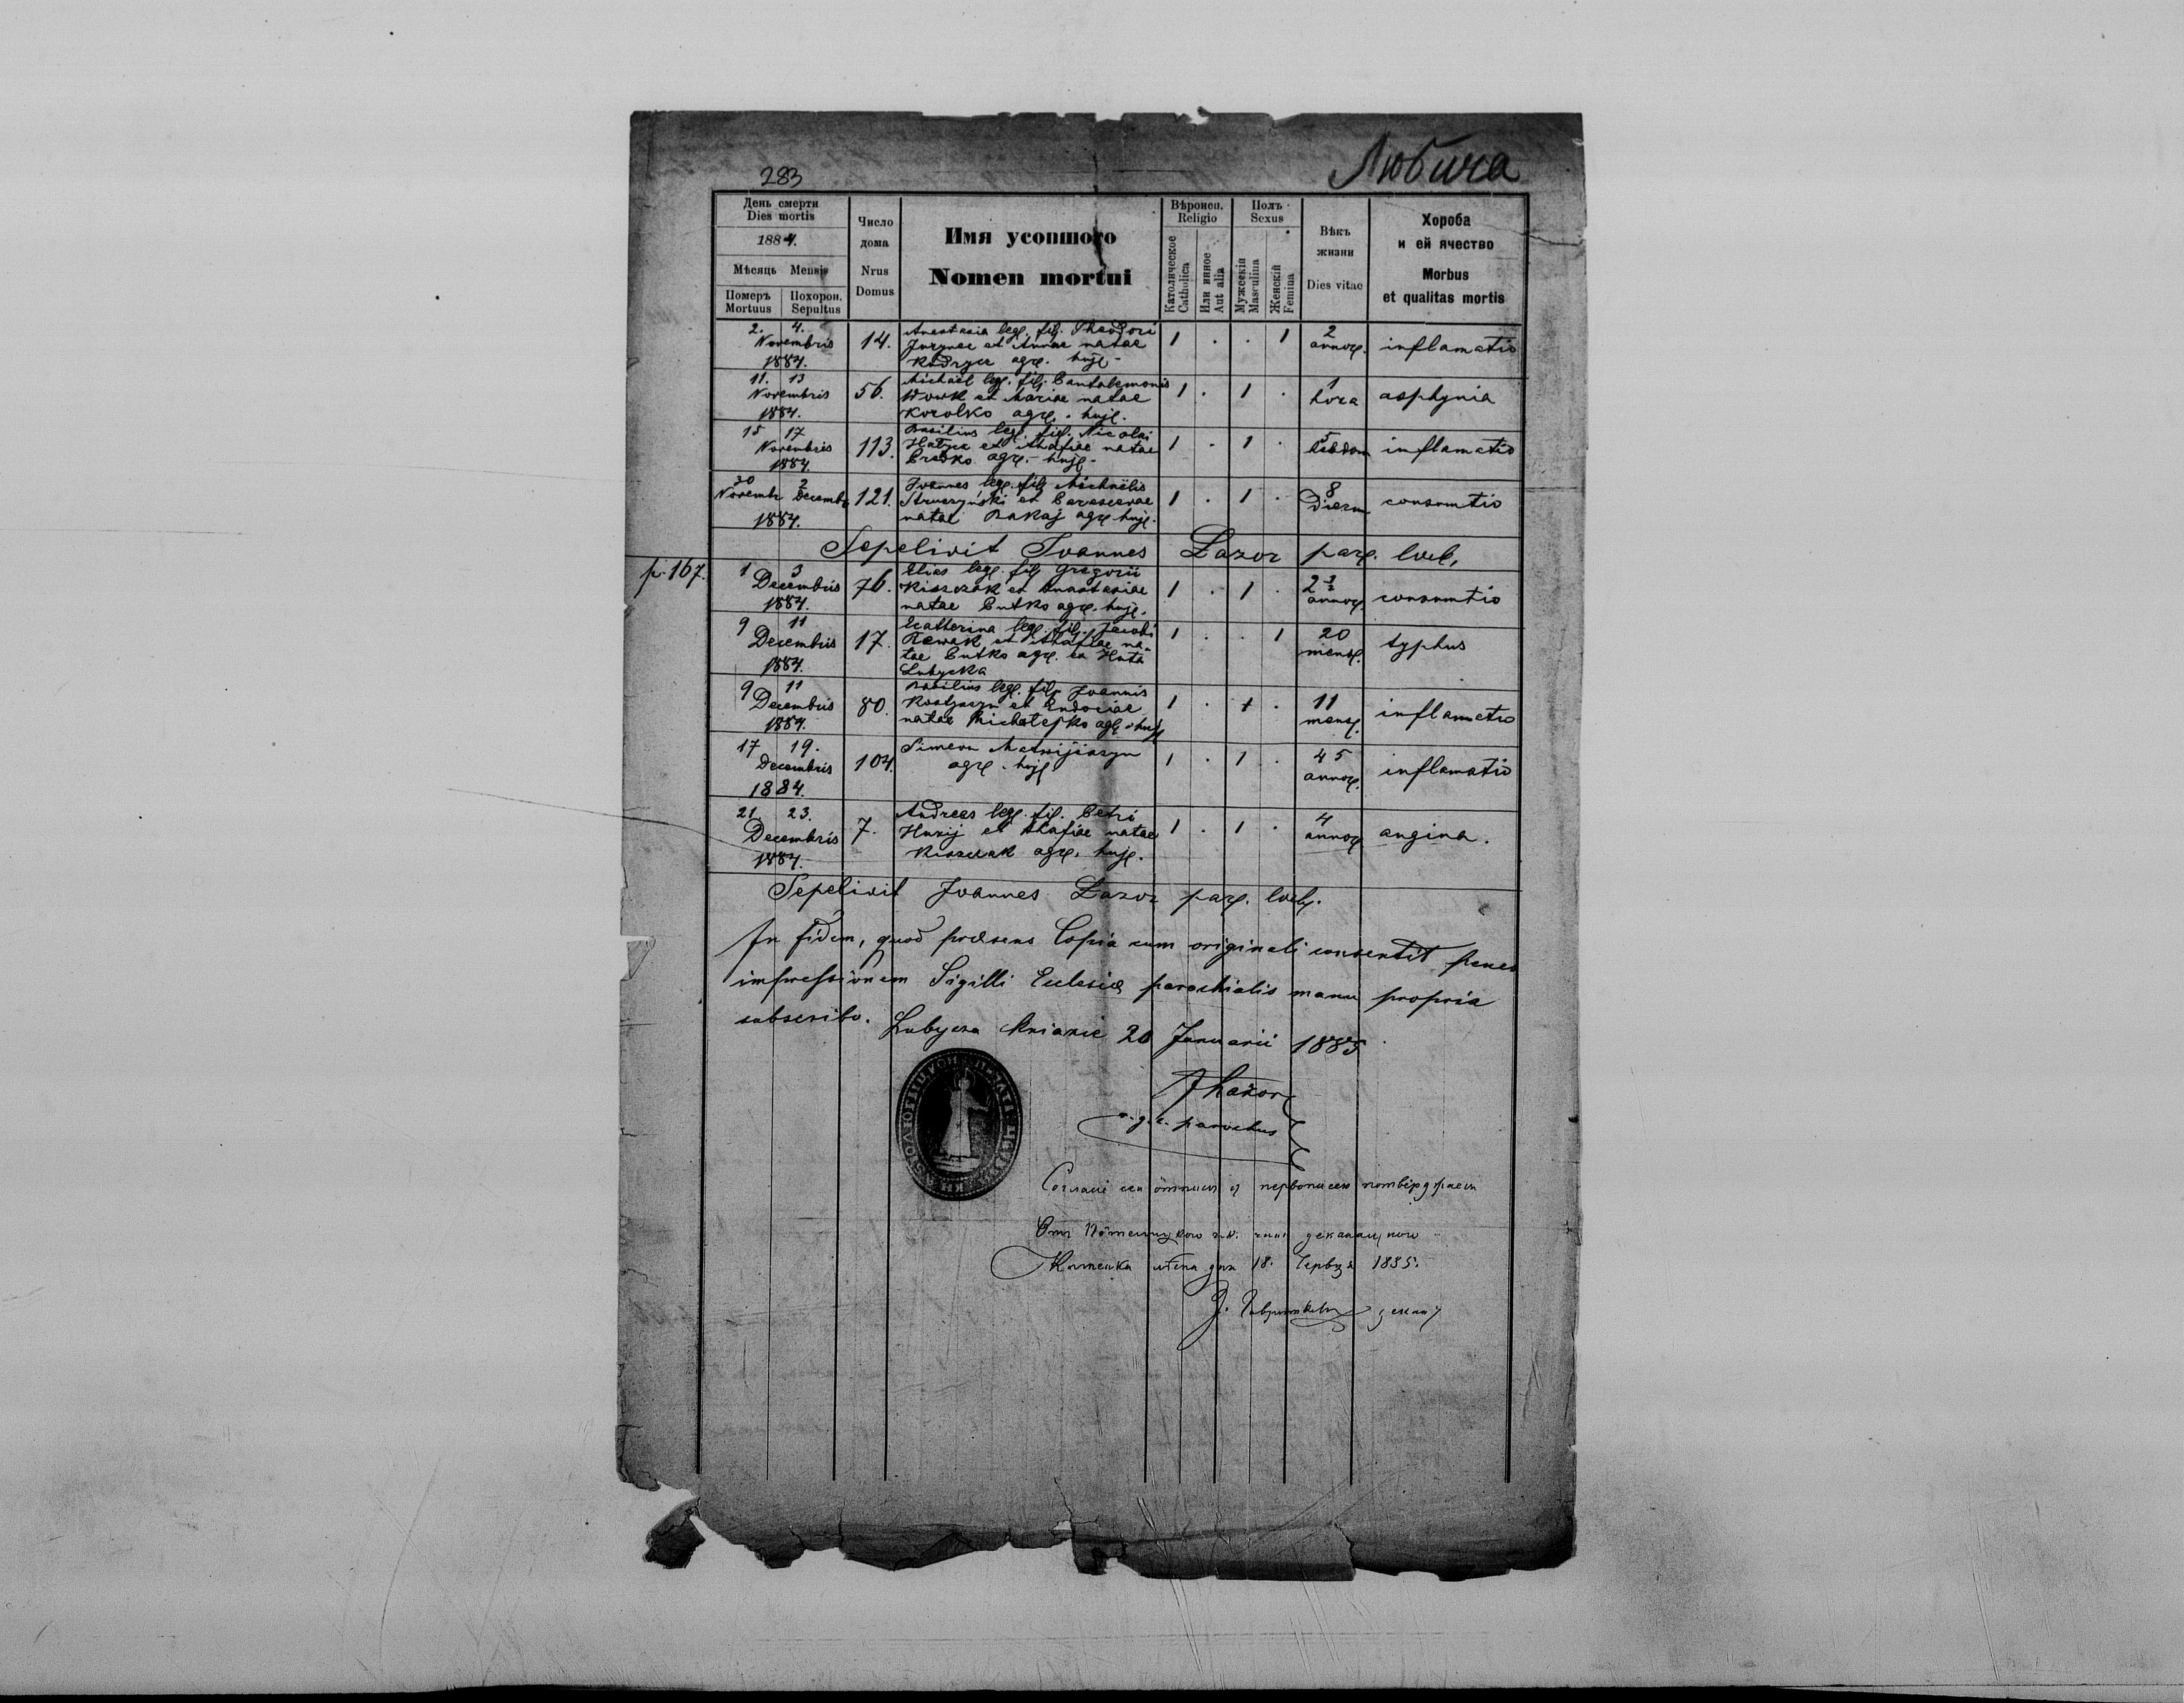 283
Любича
День смерти
Dies mortis
1884.
Мѣсяць Mensis
Померъ Mortuus
Похорон. Sepultus
Число дома
Nrus Domus
Имя усопшого
Nomen mortui
Вѣроисп.
Religio
Католическое Catholica
Или инное Aut alia
Полъ
Sexus
Мужескій Masculina
Женскій Femina
Вѣкъ жизни
Dies vitae
Хороба
и ей ячество
Morbus
et qualitas mortis
2. 4. Novembris 1884. 14.
Anastasia leg. fil. Theodori
et Annae natae
agr. huj.
1 . . 1 2 annor. inflamatio
11. 13 Novembris 1884. 56.
Michael leg. fil. Pantalemonis
Wowk et Mariae natae
Korolko agr. huj.
1 . 1 . 1 hora asphynia
15 17 Novembris 1884. 113.
Basilius leg. fil. Nicolai
et natae
agr. huj.
1 . 1 . 5 hebdom inflamatio
30 Novembr 2 Decembr 1884. 121.
Joannes leg. fil. Michaëlis
Struszyński et Parascevae
natae Bakaj agr. huj.
1 . 1 . 8 Dierum consumtio
Sepelivit Joannes Lazor par. loci,
p. 167.
1 3 Decembris 1884. 76.
Elias leg. fil. Gregorii
Kiszczak et Anastasiae
natae Putko agr. huj.
1 . 1 . 2 1/2 annor. consumtio
9 11 Decembris 1884. 17.
Catherina leg. fil. Jacobi
Nowak et na-
tae Putko agr. ex Huta
Lubycka
1 . . 1 20 mens. typhus
9 11 Decembris 1884. 80.
Basilius leg. fil. Joannis
et Eudociae
natae agr. huj.
1 . 1 . 11 mens. inflamatio
17 19. Decembris 1884. 104.
Simeon Matwijiszyn
agr. huj.
1 . 1 . 45 annor. inflamatio
21. 23. Decembris 1884. 7.
Andreas leg. fil. Petri
Huzij et natae
Kiszczak agr. huj.
1 . 1 . 4 annor. angina.
Sepelivit Joannes Lazor par. loci.
In fidem, quod præsens Copia cum originali consentit penes
impressionem Sigilli Eclesiæ parochialis manu propria
subscribo. Lubycza Kniazie 20 Januarii 1885
JLazor
g. c. parochus
потвѣрджаеся
18. Червця 1885.